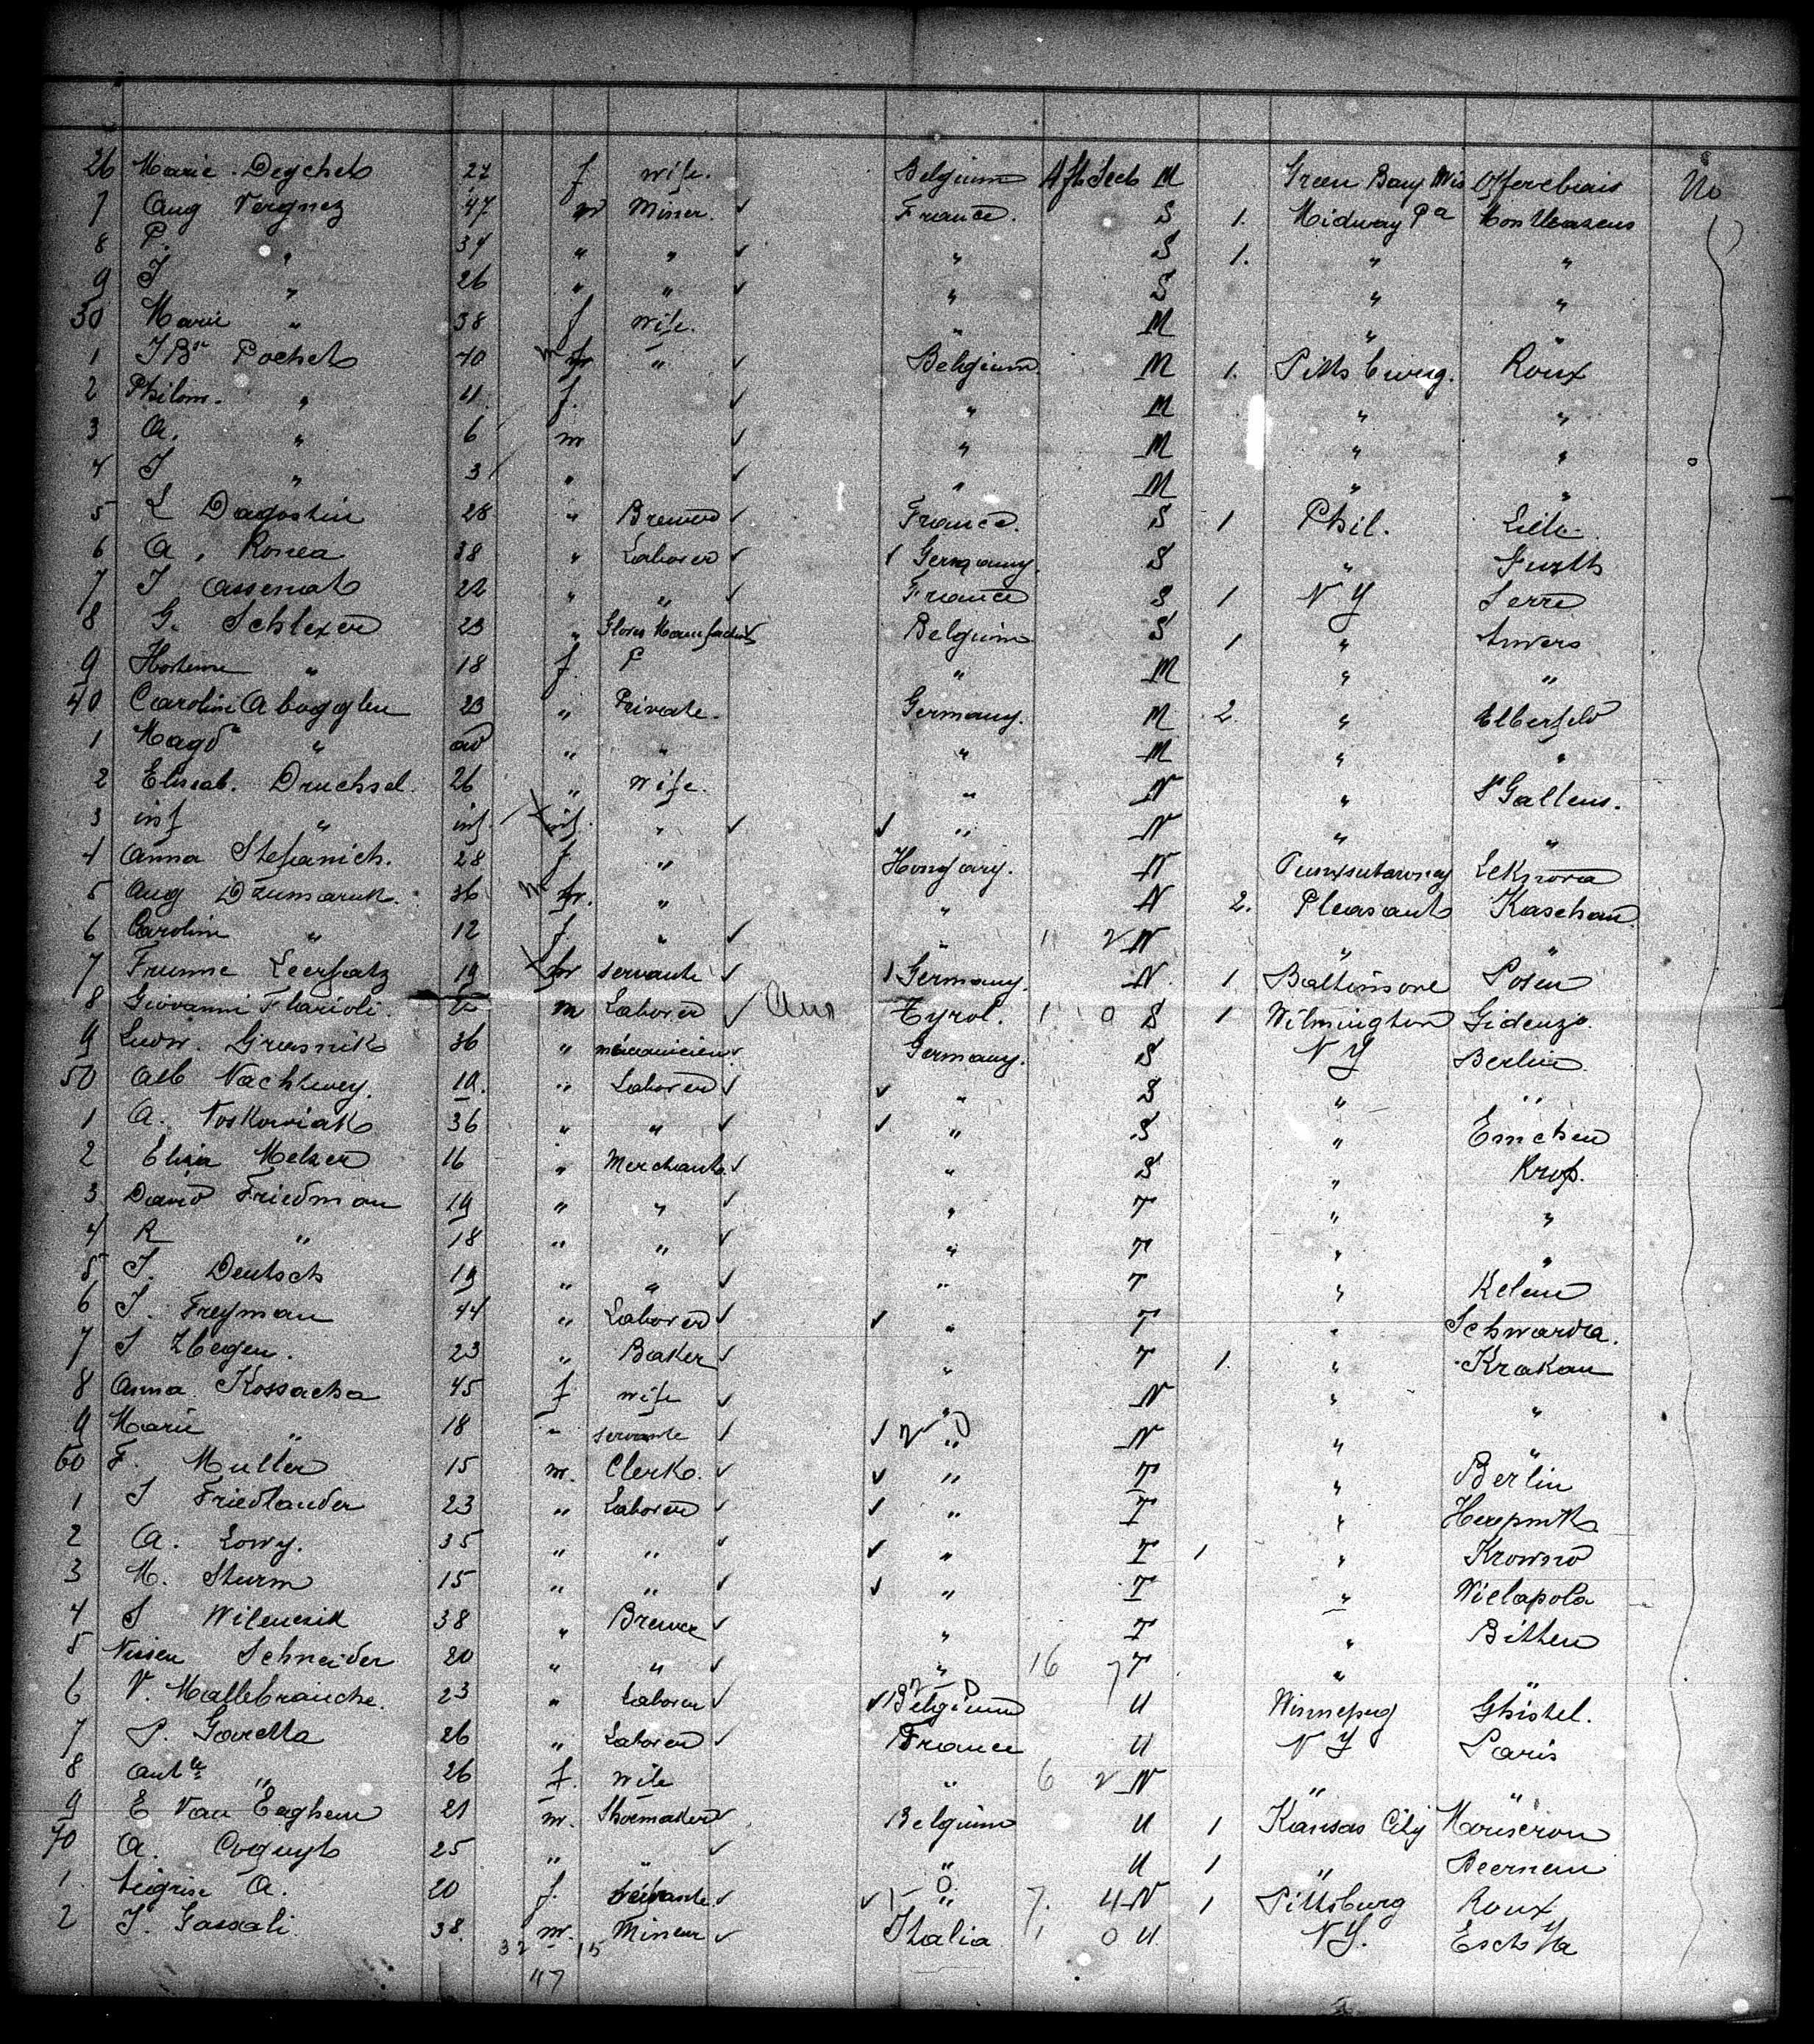 26 Marie Deychet 27 f wife. Belgium Aft Sect M Green Bay Wis No
7 Aug Vergnez 47 m Miner. ✓ France. S 1. Midway Pa
8 P. " 34 " " ✓ " S 1. " "
9 J " 26 " " ✓ " S " "
30 Marie " 38 f wife. " M " "
1 J Bte Pochet 40 m " ✓ Belgium M 1. Pittsburg. Roux
2 Philom. " 41. f. ✓ " M " "
3 A. " 6 m ✓ " M " "
4 J " 3 " ✓ " M " "
5 L Dagostin 28 " Brewer ✓ France. S 1 Phil. Lille.
6 A. Ronea 38 " Laborer ✓ Germany. S " Furth
7 J Assenat 22 " " ✓ France S 1 N Y Serre
8 G. Schlexer 23 " Gloves ✓ Belgium S 1 " Anvers
9 Hortense " 18 f. " M " "
40 Carolin Abegglen 23 " Private. Germany. M 2. " Elberfeld
1 Magd " " " " M " "
2 Elisab. Druchsel. 26 " wife. " N " St Gallens.
3 inf " inf. inf. " ✓ ✓ " N " "
4 Anna Stefanich. 28 f " Hongary. N Punxsutawney Leknova
5 Aug Dzumaruk. 36 m " " N 2. Pleasant Kaschau
6 Carolin " 12 f " ✓ " 1 2 N " "
7 Leerfatz 19 servante ✓ Germany. N. 1 Baltimore Posen
8 Giovanni Flarioli. m Laborer ✓ Aus Tyrol. 1 0 S 1 Wilmington Gidenzo.
9 Ludw. Grusnik 36 " mécanicien ✓ Germany. S N Y Berlin
50 Alb Nachtwey. 19. " Laborer ✓ ✓ " S " "
1 A. Noskowiak 36 " " ✓ ✓ " S " Emchen
2 Elisa Melzer 16 " Merchant ✓ " S "
3 David Friedman 19 " " ✓ " T " "
4 R " 18 " " ✓ " T " "
5 J. Deutsch 19 " " ✓ " T " Kelem
6 J. Freyman 44 " Laborer ✓ ✓ " T " Schwarda.
7 S 23 " Baker ✓ " T 1. " Krakau
8 Anna Kossacha 45 f wife ✓ " N " "
9 Marie " 18 " servante ✓ ✓ 2 0 " N " "
60 F. Muller 15 m. Clerk. ✓ ✓ " T " Berlin
1 S Friedlander 23 " Laborer ✓ ✓ " T "
2 A. Lowy. 35 " " ✓ ✓ " T 1 " Krowno
3 M. Sturm 15 " " ✓ ✓ " T " Wielapola
4 S Wilenczik 38 " Brewer ✓ " T " Bitten
5 Nissen Schneider 20 " " ✓ " 16 7 T " "
6 V. Mallebranche. 23 " Laborer ✓ ✓ Belgium U Winnepeg Ghistel.
7 P. Gavetta 26 " Laborer ✓ France U N Y Paris
8 " 26 f. wife " 6 2 N " "
9 E Van Eeghem 21 m. Shoemaker ✓ Belgium U 1 Kansas City Mouscron
70 A. Coquyt 25 " " ✓ " U 1 " Beernem
1. A. 20 f. servante ✓ ✓ 1 0 " 7. 4 N 1 Pittsburg Roux
2 J. Gassali 38. m. Mineur ✓ Italia 1 0 U N Y.
32 15
117